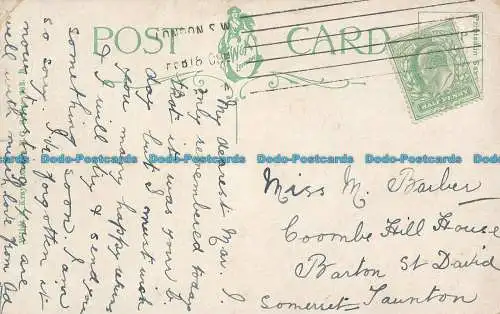 POST CARD
LONDON S.W
HALFPENNY
My dearest Mar. I
only remembered today
that it was your b.
day but I must wish
you many happy returns
& I will try & send you
something soon. I am
so sorry I'd forgotten it
now. I trust you are
well with much love from Ad
Miss M. Barber
Coombe Hill House
Barton St David
Somerset Taunton
Dodo-Postcards Dodo-Postcards Dodo-Postcards Dodo-Postcards Dodo-Postcards
Dodo-Postcards Dodo-Postcards Dodo-Postcards Dodo-Postcards Dodo-Postcards